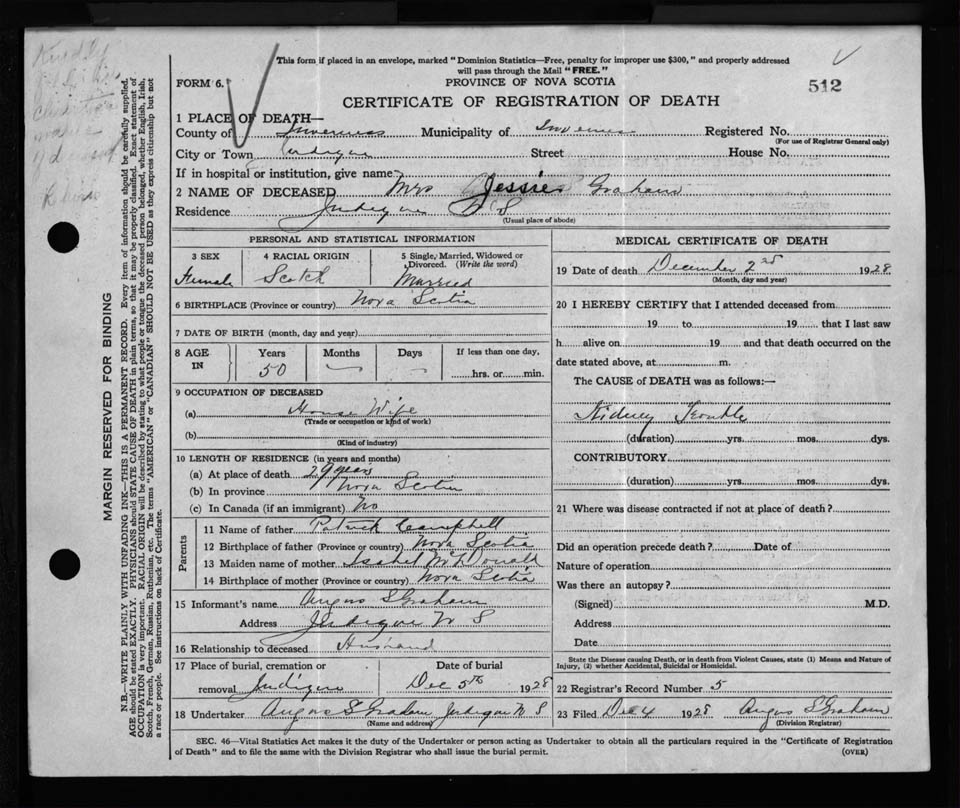 This form if placed in an envelope, marked "Dominion Statistics—Free, penalty for improper use $300," and properly addressed
will pass through the Mail "FREE."
FORM 6.
PROVINCE OF NOVA SCOTIA
512
CERTIFICATE OF REGISTRATION OF DEATH
1 PLACE OF DEATH—
County of Inverness Municipality of Inverness Registered No.
(For use of Registrar General only)
City or Town Judique Street House No.
If in hospital or institution, give name
2 NAME OF DECEASED Mrs Jessie Graham
Residence Judique N S
(Usual place of abode)
PERSONAL AND STATISTICAL INFORMATION
3 SEX 4 RACIAL ORIGIN 5 Single, Married, Widowed or
Divorced. (Write the word)
Female Scotch Married
6 BIRTHPLACE (Province or country) Nova Scotia
7 DATE OF BIRTH (month, day and year)
8 AGE IN Years Months Days If less than one day,
50 — — hrs. or min.
9 OCCUPATION OF DECEASED
(a) House Wife
(Trade or occupation or kind of work)
(b)
(Kind of industry)
10 LENGTH OF RESIDENCE (in years and months)
(a) At place of death 29 years
(b) In province Nova Scotia
(c) In Canada (if an immigrant) No
Parents
11 Name of father Patrick Campbell
12 Birthplace of father (Province or country) Nova Scotia
13 Maiden name of mother Isabel McDonald
14 Birthplace of mother (Province or country) Nova Scotia
15 Informant's name Angus S Graham
Address Judique N S
16 Relationship to deceased Husband
17 Place of burial, cremation or Date of burial
removal Judique Dec 5th 1928
18 Undertaker Angus S Graham Judique N S
(Name and address)
MEDICAL CERTIFICATE OF DEATH
19 Date of death December 2nd 1928
(Month, day and year)
20 I HEREBY CERTIFY that I attended deceased from
19 to 19 that I last saw
h alive on 19 and that death occurred on the
date stated above, at m.
The CAUSE of DEATH was as follows:—
Kidney Trouble
(duration) yrs. mos. dys.
CONTRIBUTORY
(duration) yrs. mos. dys.
21 Where was disease contracted if not at place of death?
Did an operation precede death? Date of
Nature of operation
Was there an autopsy?
(Signed) M.D.
Address
Date
State the Disease causing Death, or in death from Violent Causes, state (1) Means and Nature of
Injury, (2) whether Accidental, Suicidal or Homicidal.
22 Registrar's Record Number 5
23 Filed Dec 4 1928 Angus S Graham
(Division Registrar)
SEC. 46—Vital Statistics Act makes it the duty of the Undertaker or person acting as Undertaker to obtain all the particulars required in the "Certificate of Registration
of Death" and to file the same with the Division Registrar who shall issue the burial permit.
(OVER)
MARGIN RESERVED FOR BINDING
N.B.—WRITE PLAINLY WITH UNFADING INK—THIS IS A PERMANENT RECORD. Every item of information should be carefully supplied.
AGE should be stated EXACTLY. PHYSICIANS should STATE CAUSE OF DEATH in plain terms, so that it may be properly classified. Exact statement of
OCCUPATION is very important. RACIAL ORIGIN will be described by stating to what people or tongue the deceased person belonged, whether English, Irish,
Scotch, French, German, Russian, Ruthenian, etc. The terms "AMERICAN" or "CANADIAN" SHOULD NOT BE USED as they express citizenship but not
a race or people. See instructions on back of Certificate.
Kindly
name